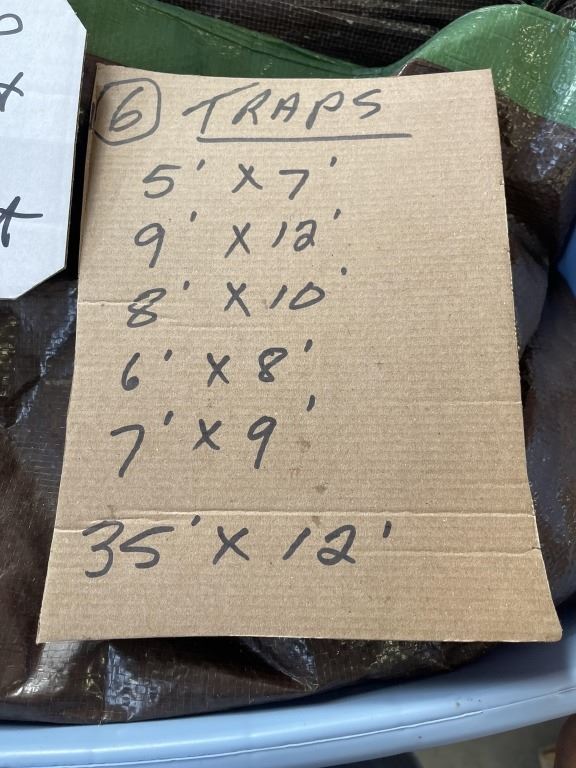 6 TRAPS
5' x 7'
9' x 12'
8' x 10'
6' x 8'
7' x 9'
35' x 12'